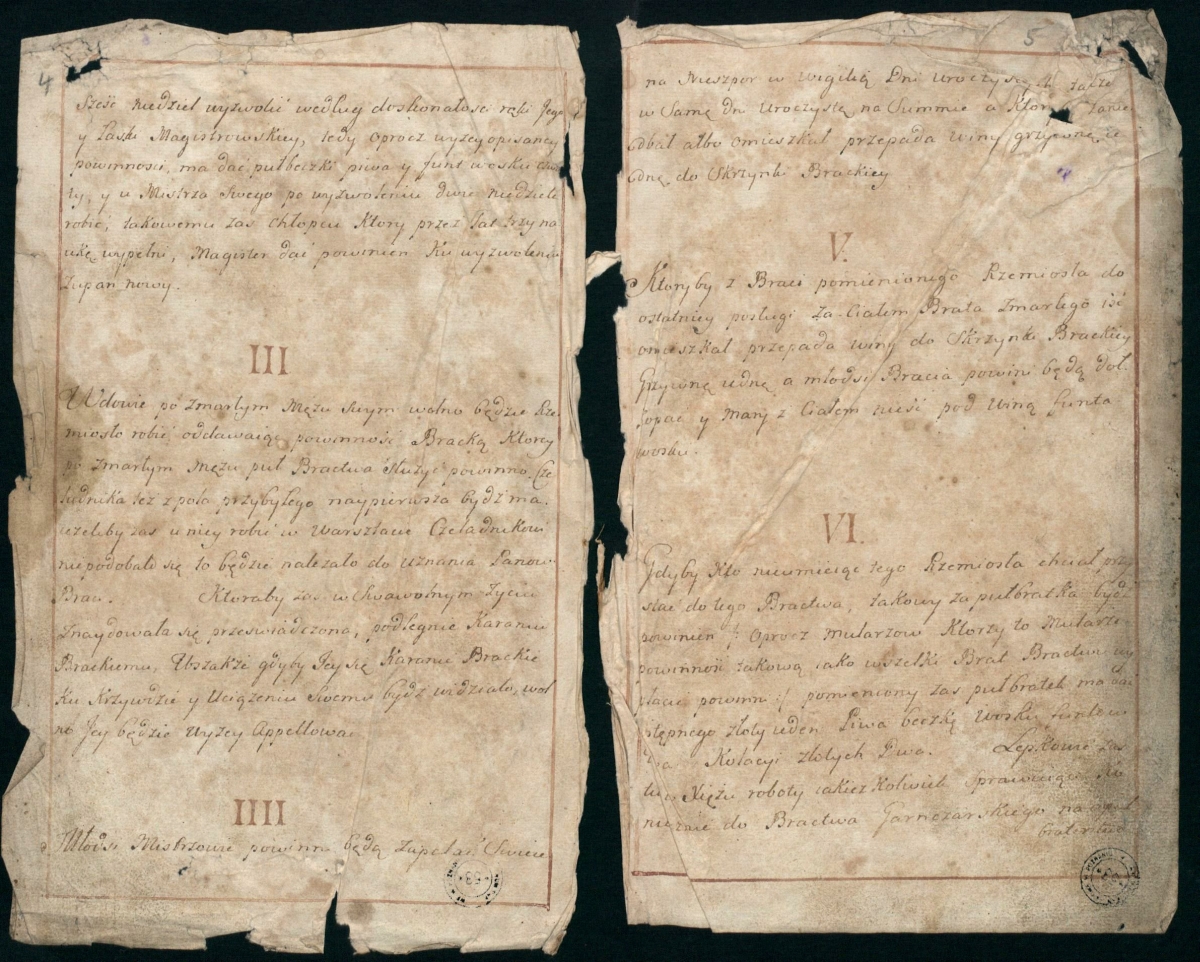 4
Sześć niedziel wyzwolić według doskonałosci ręki Jego
y Łaski Magistrowskiey, tedy oprocz wyzey opisaney
powinnosci, ma dać pułbeczki piwa y funt wosku
y u Mistrza Swego po wyzwoleniu dwie niedziele
robić, takowemu zas chłopcu Ktory przez lat trzy na
ukę wypełni, Magister dać powinien Ku wyzwoleniu
Zupan nowy.
III
Wdowie po zmarłym Męzu Swym wolno będzie Rze
miosło robić oddawaiąc powinność Bracką Ktorey
po zmarłym męzu puł Bractwa służyć powinno. Cze
ladnika tez z pola przybyłego naypierwsza bydź ma.
iezeliby zas u niey robić w Warsztacie Czeladnikowi
niepodobało się to będzie nalezało do uznania Panow
Braci. Ktoraby zas w Swawolnym Zyciu
znaydowała się przeswiadczona, podlegnie Karaniu
Brackiemu, Wszakże gdyby Jey się Karanie Brackie
Ku Krzywdzie y Uciązeniu Swemu bydz widziało, wol
no Jey będzie Wyzey Appellować
IIII
Młodsi Mistrzowie powinni będą zupełnie Swiece
5
na Nieszpor w wigilią Dni uroczystych także
w Samę dni Uroczystę na Summie a Ktoryby zanie
dbał albo omieszkał przepada winy grzywnę ie
dnę do Skrzynki Brackiey
V.
Ktoryby z Braci pomienionego Rzemiosła do
ostatniey posługi za Ciałem Brata zmarłego iść
omieszkał przepada winy do Skrzynki Brackiey
Grzywnę iednę a młodsi Bracia powini będą doł
kopać y Mary z Ciałem nieść pod winą funta
wosku.
VI.
Gdyby Kto nieumieiąc tego Rzemiosła chciał przy
stać do tego Bractwa, takowy za pułbratka bydź
powinien /: Oprocz Mularzow Ktorzy to Mularze
powinność takową iako wszelki Brat Bractwu wy
płacić powinni :/ pomieniony zas pułbratek ma dać
wstępnego złoty ieden Piwa beczkę Wosku funtow
Kolacyi złotych Dwa. Lepkowie zas
roboty iakiez Kolwiek Sprawuiący
do Bractwa Garnczarskiego